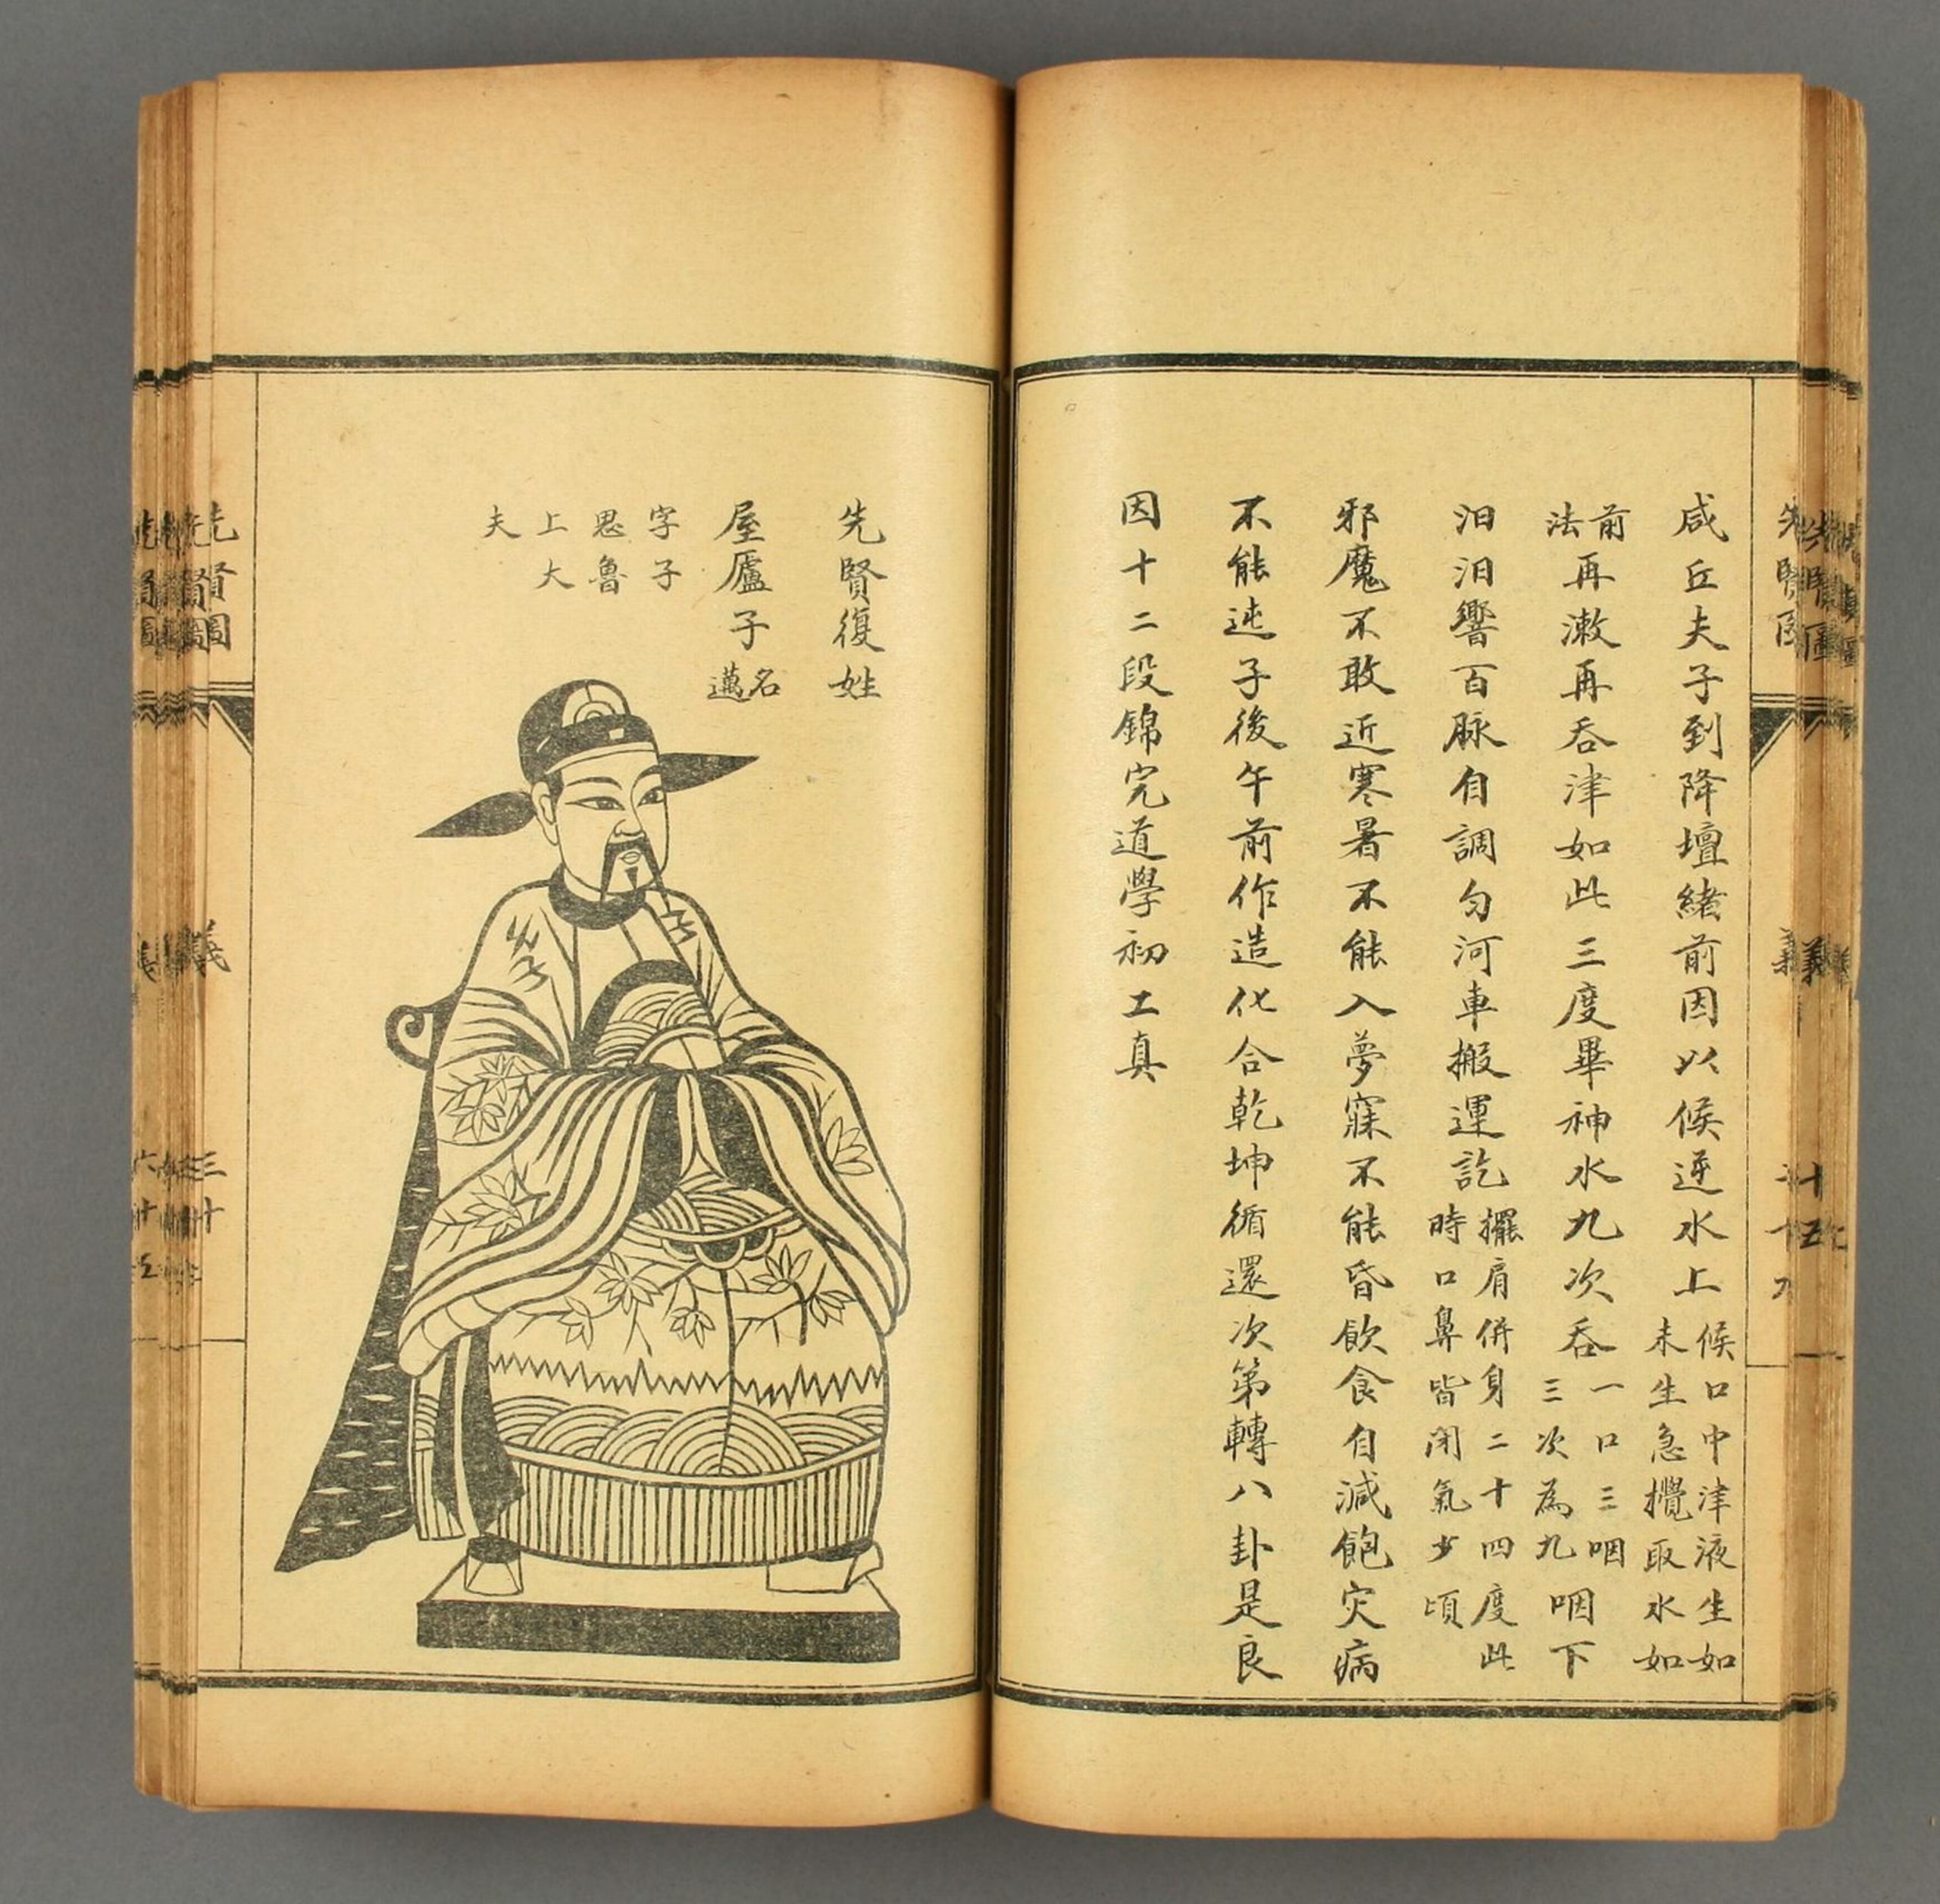 咸丘夫子到降壇緒前因以候逆水上候口中津液生如未生急攪取水如
前法再漱再吞津如此三度畢神水九次吞一口三咽三次為九咽下
汩汩響百脉自調匀河車搬運訖擺肩併身二十四度此時口鼻皆閉氣少頃
邪魔不敢近寒暑不能入夢寐不能昏飲食自減飽灾病
不能迍子後午前作造化合乾坤循還次第轉八卦是良
因十二段錦完道學初工真
先賢復姓
屋廬子名邁
字子
思魯
上大
夫
先賢圖
義
三十